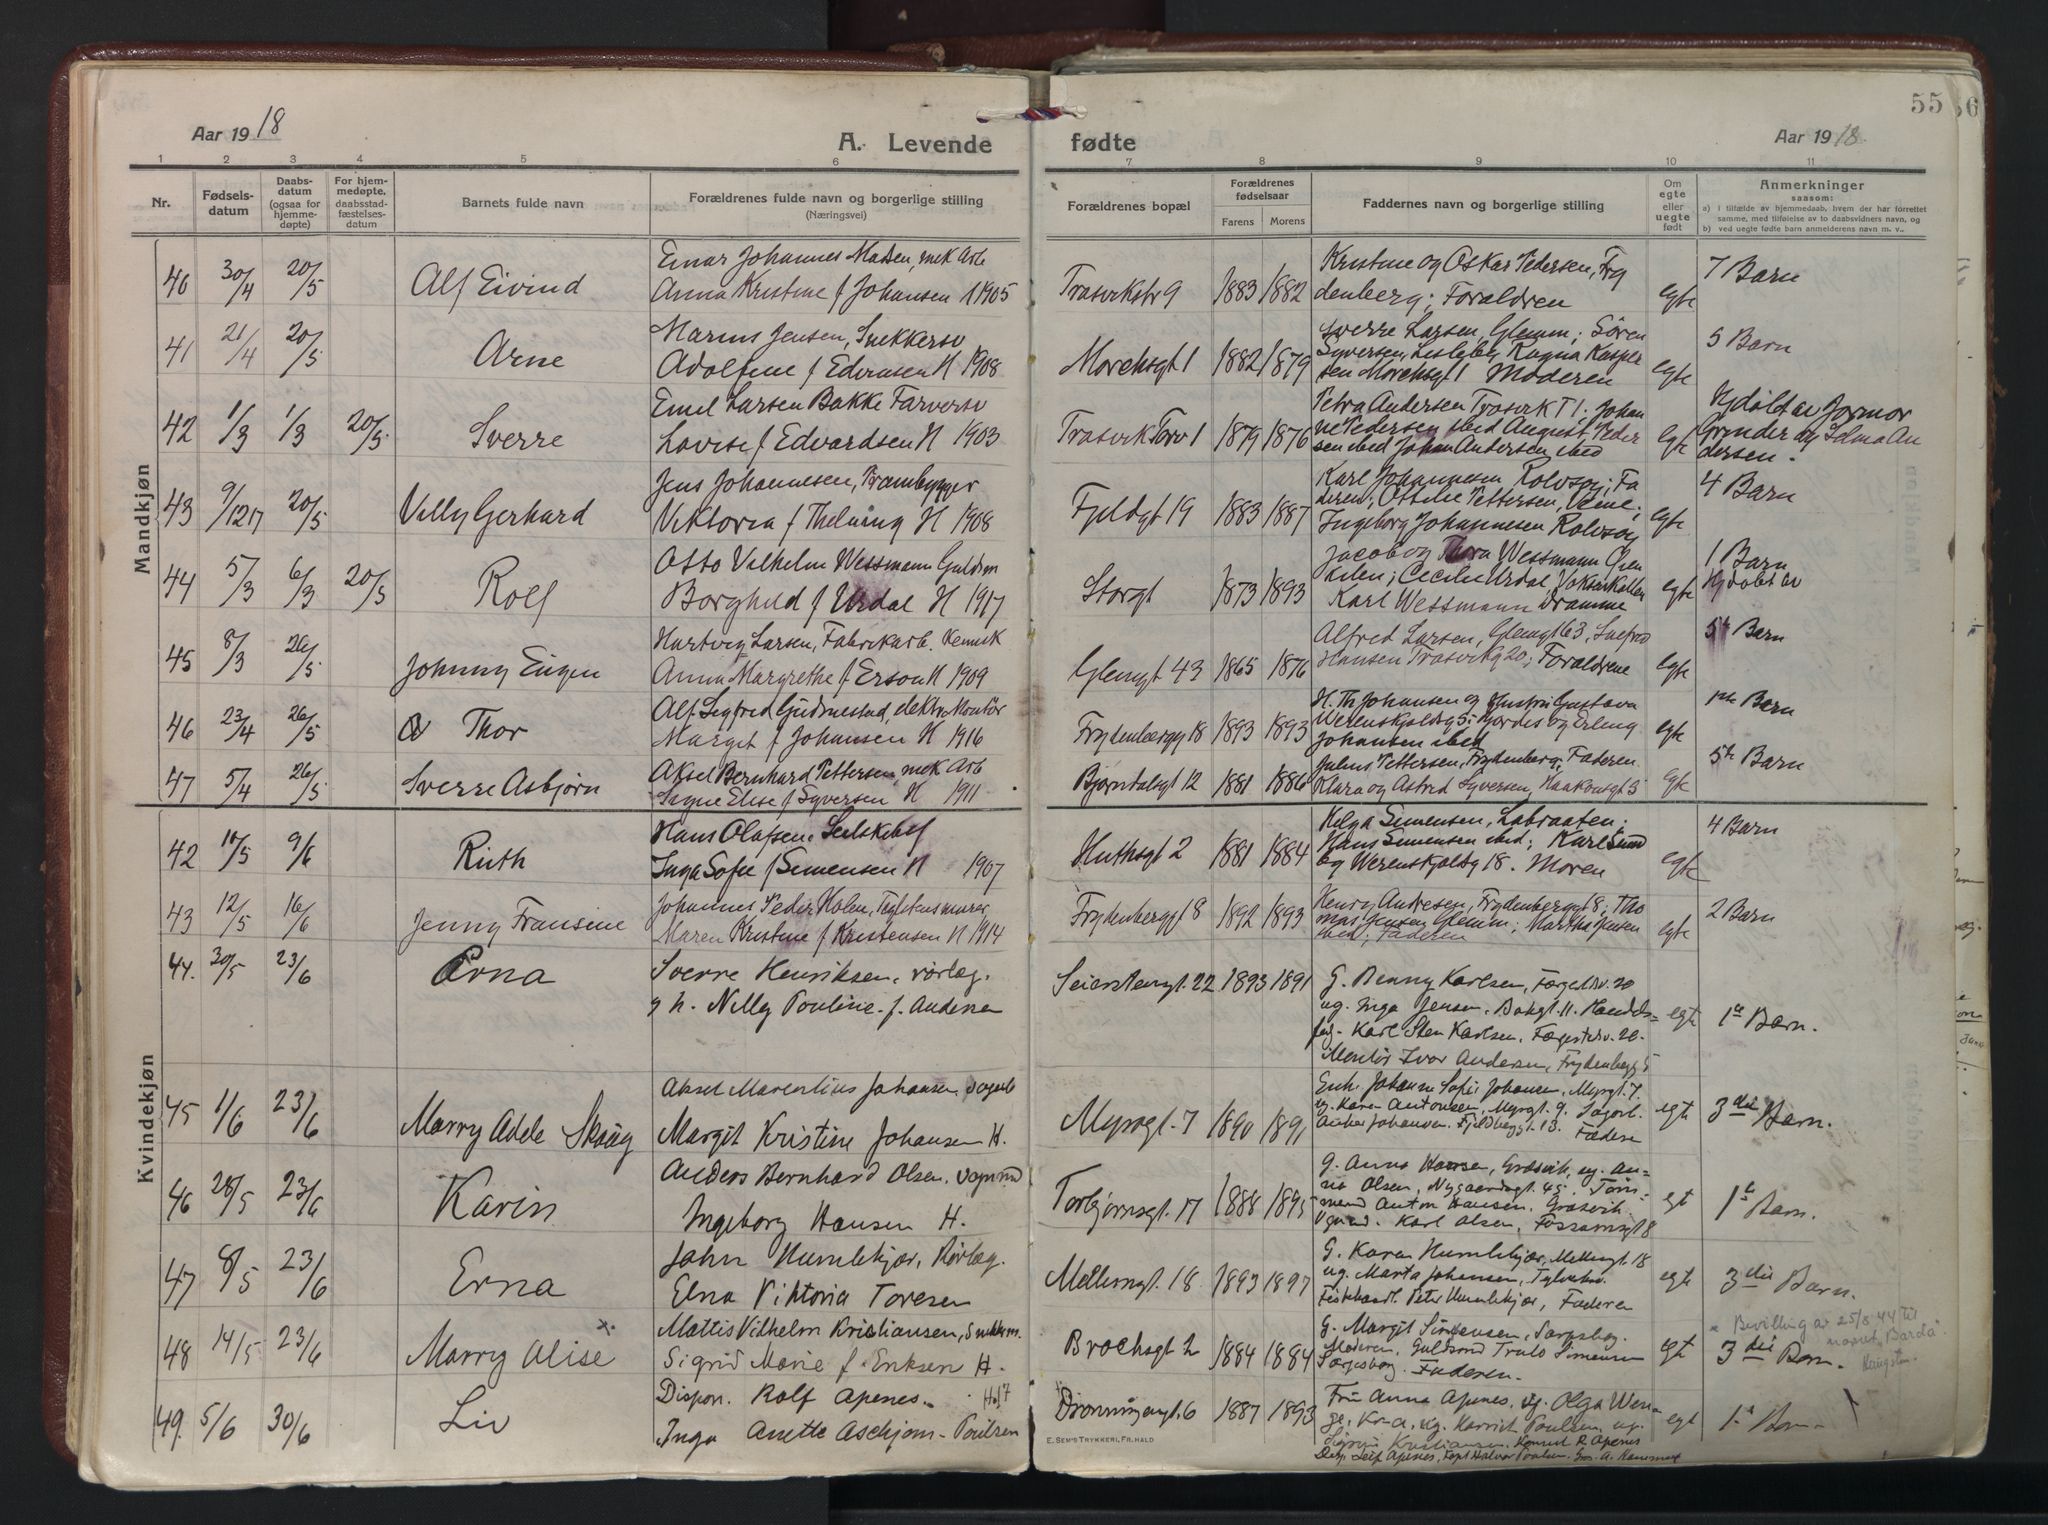 55
56
Aar 1918
A. Levende
fødte
Aar 1918
1 2 3 4 5 6 7 8 9 10 11
Nr.
Fødselsdatum
Daabsdatum (ogsaa for hjemmedøpte)
For hjemmedøpte, daabsstadfæstelsesdatum
Barnets fulde navn
Forældrenes fulde navn og borgerlige stilling
(Næringsvei)
Forældrenes bopæl
Forældrenes fødselsaar
Farens Morens
Faddernes navn og borgerlige stilling
Om egte eller uegte født
Anmerkninger
saasom:
a) i tilfælde av hjemmedaab, hvem der har forrettet samme, med tilføielse av to daabsvidners navn, og
b) ved uegte fødte barn anmelderens navn m. v..
Mandkjøn
40 30/4 20/5 Alf Eivind
Einar Johannes Madsen, mek Arb
Anna Kristine f Johansen 1905
Trosvikstr 9 1883 1882
Kristine og Oskar Pedersen, Fry
denberg; Forældren
egte 7 Barn
41 21/4 20/5 Arne
Marius Jensen, Snekkersv
Adolfine f Edvinsen H 1908
Morchsgt 1 1882 1879
Sverre Larsen, Glemm; Sören
Syversen, Lisleby, Ragna Kasper
sen Morchsgt 1 Moderen
egte 5 Barn
42 1/3 1/3 20/5 Sverre
Emil Larsen Bakke Farversv
Lovise f Edvardsen H 1903
Trosvik Torv 1 1879 1876
Petra Andersen Trosvik T 1. Johan
ne Pedersen ibid August Peder
sen ibid Johan Andersen ibid
egte Hjdöbt av Jormor
Grinder og Selma An
dersen.
43 9/12 17 20/5 Villy Gerhard
Jens Johannesen,
Viktoria f Thelning H 1908
Fjeldgt 19 1883 1887
Karl Johannesen Rolvsöy; Fa
deren; Ottilie Pettersen,
Ingeborg Johannesen Rolvsöy
egte 4 Barn
44 5/3 6/3 20/5 Rolf
Otto Vilhelm Wessmann Guldsm
Borghild f Urdal H 1917
Storgt 1873 1893
Jacob og Thora Wessmann
Cecilie Urdal,
Karl Wessmann Dramme
egte 1 Barn
Hjdöbt av
45 8/3 26/5 Johnny Eugen
Hartvig Larsen, Fabrikarb. Kemisk
Anna Margrethe f Erson H 1909
Glemgt 43 1865 1876
Alfred Larsen, Glemgt 63,
Hansen Trosvikg 20; Forældrene
egte 5te Barn
46 23/4 26/5 Thor
Alf Sigfred Gudmestad, elektr. Montör
Margit f Johansen H 1916
Frydenbergg 18 1893 1893
H. Th Johansen og Hustru Gustava
Werenskjoldsg 5; Hjördis og Erling
Johansen ibid
egte 1ste Barn
47 5/4 26/5 Sverre Asbjörn
Aksel Bernhard Pettersen, mek Arb
Signe Elise f Syversen H 1911
Bjørndalsgt 12 1881 1886
Julius Pettersen, Frydenberg; Faderen
Klara og Astrid Syversen, Haakonsgt 5
egte 5te Barn
Kvindekjøn
42 10/5 9/6 Ruth
Hans Olafsen,
Inga Sofie f Simensen H 1907
Huthsgt 2 1881 1884
Helga Simensen, Labraaten;
Hans Simensen ibid; Karl Sund
by Werenskjoldsg 18. Moren
egte 4 Barn
43 12/5 16/6 Jenny Fransine
Johannes Peder Holen,
Maren Kristine f Kristensen H 1914
Frydenberggt 8 1892 1893
Henry Andresen, Frydenberggt 8; Tho
mas Jensen Glemm; Martha Jensen
ibid; Faderen
egte 2 Barn
44. 30/5 23/6 Erna
Sverre Henriksen, rörlæg.
g h. Nilly Pouline f. Andersen
Seierstensgt. 22 1893 1891
G. Benny Karlsen, Færgestedsv. 20
ug. Inga Jensen, Bakgt. 11. Handels-
Karl Sten Karlsen, Færgestedv. 20.
Montör Ivar Andersen, Frydenbergg 5
egte 1ste Barn.
45 1/6 23/6 Marry Adele Skaug
Aksel Marentius Johansen, sagarb
Margit Kristine Johansen H.
Myragt. 7 1890 1891
Enke Johanne Sofie Johansen, Myrgt. 7.
ug. Karen Antonsen, Myrgt. 9. Sagarb.
Anker Johansen. Fjeldbergt. 13. Fadere
egte 3die Barn.
46 28/5 23/6 Karin
Anders Bernhard Olsen, vognmd
Ingeborg Hansen H.
Torbjørnsgt. 17 1888 1895
G. Anna Hansen, Græsvik, ug. An-
na Olsen, Nygaardsgt. 45. Töm-
mermd Anton Hansen, Græsvik
Vognmd. Karl Olsen, Fossumsgt 8
egt 1ste Barn.
47 8/5 23/6 Erna
John Humlekjær, Rörlæg.
Elna Viktoria Toresen
Mellemgt. 18 1893 1897
G. Karen Humlekjær, Mellemgt. 18
ug. Marta Johansen,
Fiskhandl. Peter Humlekjær, Faderen
egt 3die Barn.
48 14/5 23/6 Marry Alise x.
Mattis Vilhelm Kristiansen, Snekkerm.
Sigrid Marie f. Eriksen H.
Brochsgt 2 1884 1884
G. Margit Simensen, Sarpsborg.
Moderen, Guldsmd Truls Simensen
Sarpsborg. Faderen.
egt 3die Barn.
x Bevilling av 25/8 44 til
navnet "Barda".
Kongsten.
49. 5/6 30/6 Liv
Dispon. Rolf Apenes.
Inga Anette Aschjem-Poulsen
Dronningensgt. 6 1887 1893
Fru Anna Apenes, ug. Olga Wen-
ge, Kr-a, ug. Harriet Poulsen, ug.
Kristiansen, Konsul R. Apenes
Disp. Leif Apenes, Kapt Halvor Poulsen.
egt 1ste Barn
E. SEM'S TRYKKERI, FR.HALD